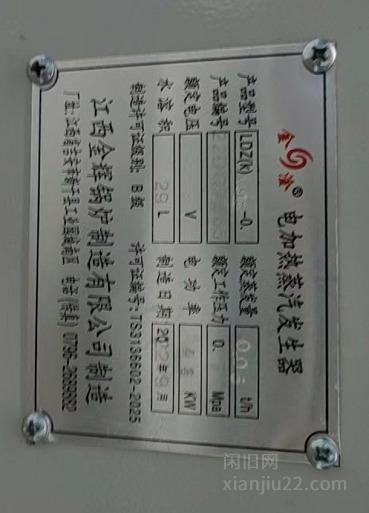 金 ® 电加热蒸汽发生器
产品型号 LDZ(K) -0. 额定蒸发量 0.05 t/h
产品编号 额定工作压力 0. Mpa
额定电压 V 电功率 KW
水容积 29 L 制造日期 2022年9月
制造许可证级别: B级 许可证编号: TS3136602-2025
江西金辉锅炉制造有限公司制造
厂址: 江西省吉安市新干县工业园城南区 电话(传真) 0796-2688892
闲旧网
xianjiu22.com